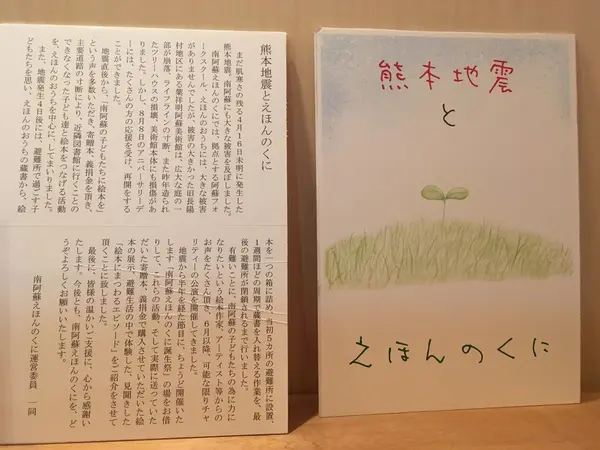 熊本地震とえほんのくに
まだ肌寒さの残る4月16日未明に発生した
熊本地震。南阿蘇にも大きな被害を及ぼしました。
南阿蘇えほんのくにでは、拠点とする阿蘇フォ
ークスクール、えほんのおうちには、大きな被害
がありませんでしたが、被害の大きかった旧長陽
村地区にある葉祥明阿蘇美術館は、広大な庭の一
部が崩落、ライフラインの寸断、また昨年造られ
たツリーハウスの損壊、美術館本体にも損傷があ
りました。しかし、8月8日のアニバーサリーデ
ーには、たくさんの方の応援を受け、再開をする
ことができました。
地震直後から、「南阿蘇の子どもたちに絵本を」
という声を多数いただき、寄贈本、義捐金を頂き、
主要道路の寸断により、近隣図書館に行くことの
できなくなった子ども達と絵本をつなげる活動
を、えほんのおうちを中心に、してまいりました。
また、地震発生4日後には、避難所で過ごす子
どもたちを思い、えほんのおうちの蔵書から、絵
本を一つの箱に詰め、当初5カ所の避難所に設置、
1週間ほどの周期で蔵書を入れ替える作業を、最
後の避難所が閉鎖されるまで行いました。
有難いことに、南阿蘇の子どもたちの為に力に
なりたいという絵本作家、アーティスト等からの
お声をたくさん頂き、6月以降、可能な限りチャ
リティーの公演を開催してきました。
地震から半年を経た節目に、ちょうど開催いた
します「南阿蘇えほんのくに誕生祭」の場をお借
りして、これらの活動、そして実際に送っていた
だいた寄贈本、義捐金で購入させていただいた絵
本の展示、避難生活の中で体験した、見聞きした
「絵本にまつわるエピソード」をご紹介をさせて
頂くことに致しました。
最後に、皆様の温かいご支援に、心から感謝い
たします。今後とも、南阿蘇えほんのくにを、ど
うぞよろしくお願いいたします。
南阿蘇えほんのくに運営委員 一同
熊本地震
と
えほんのくに